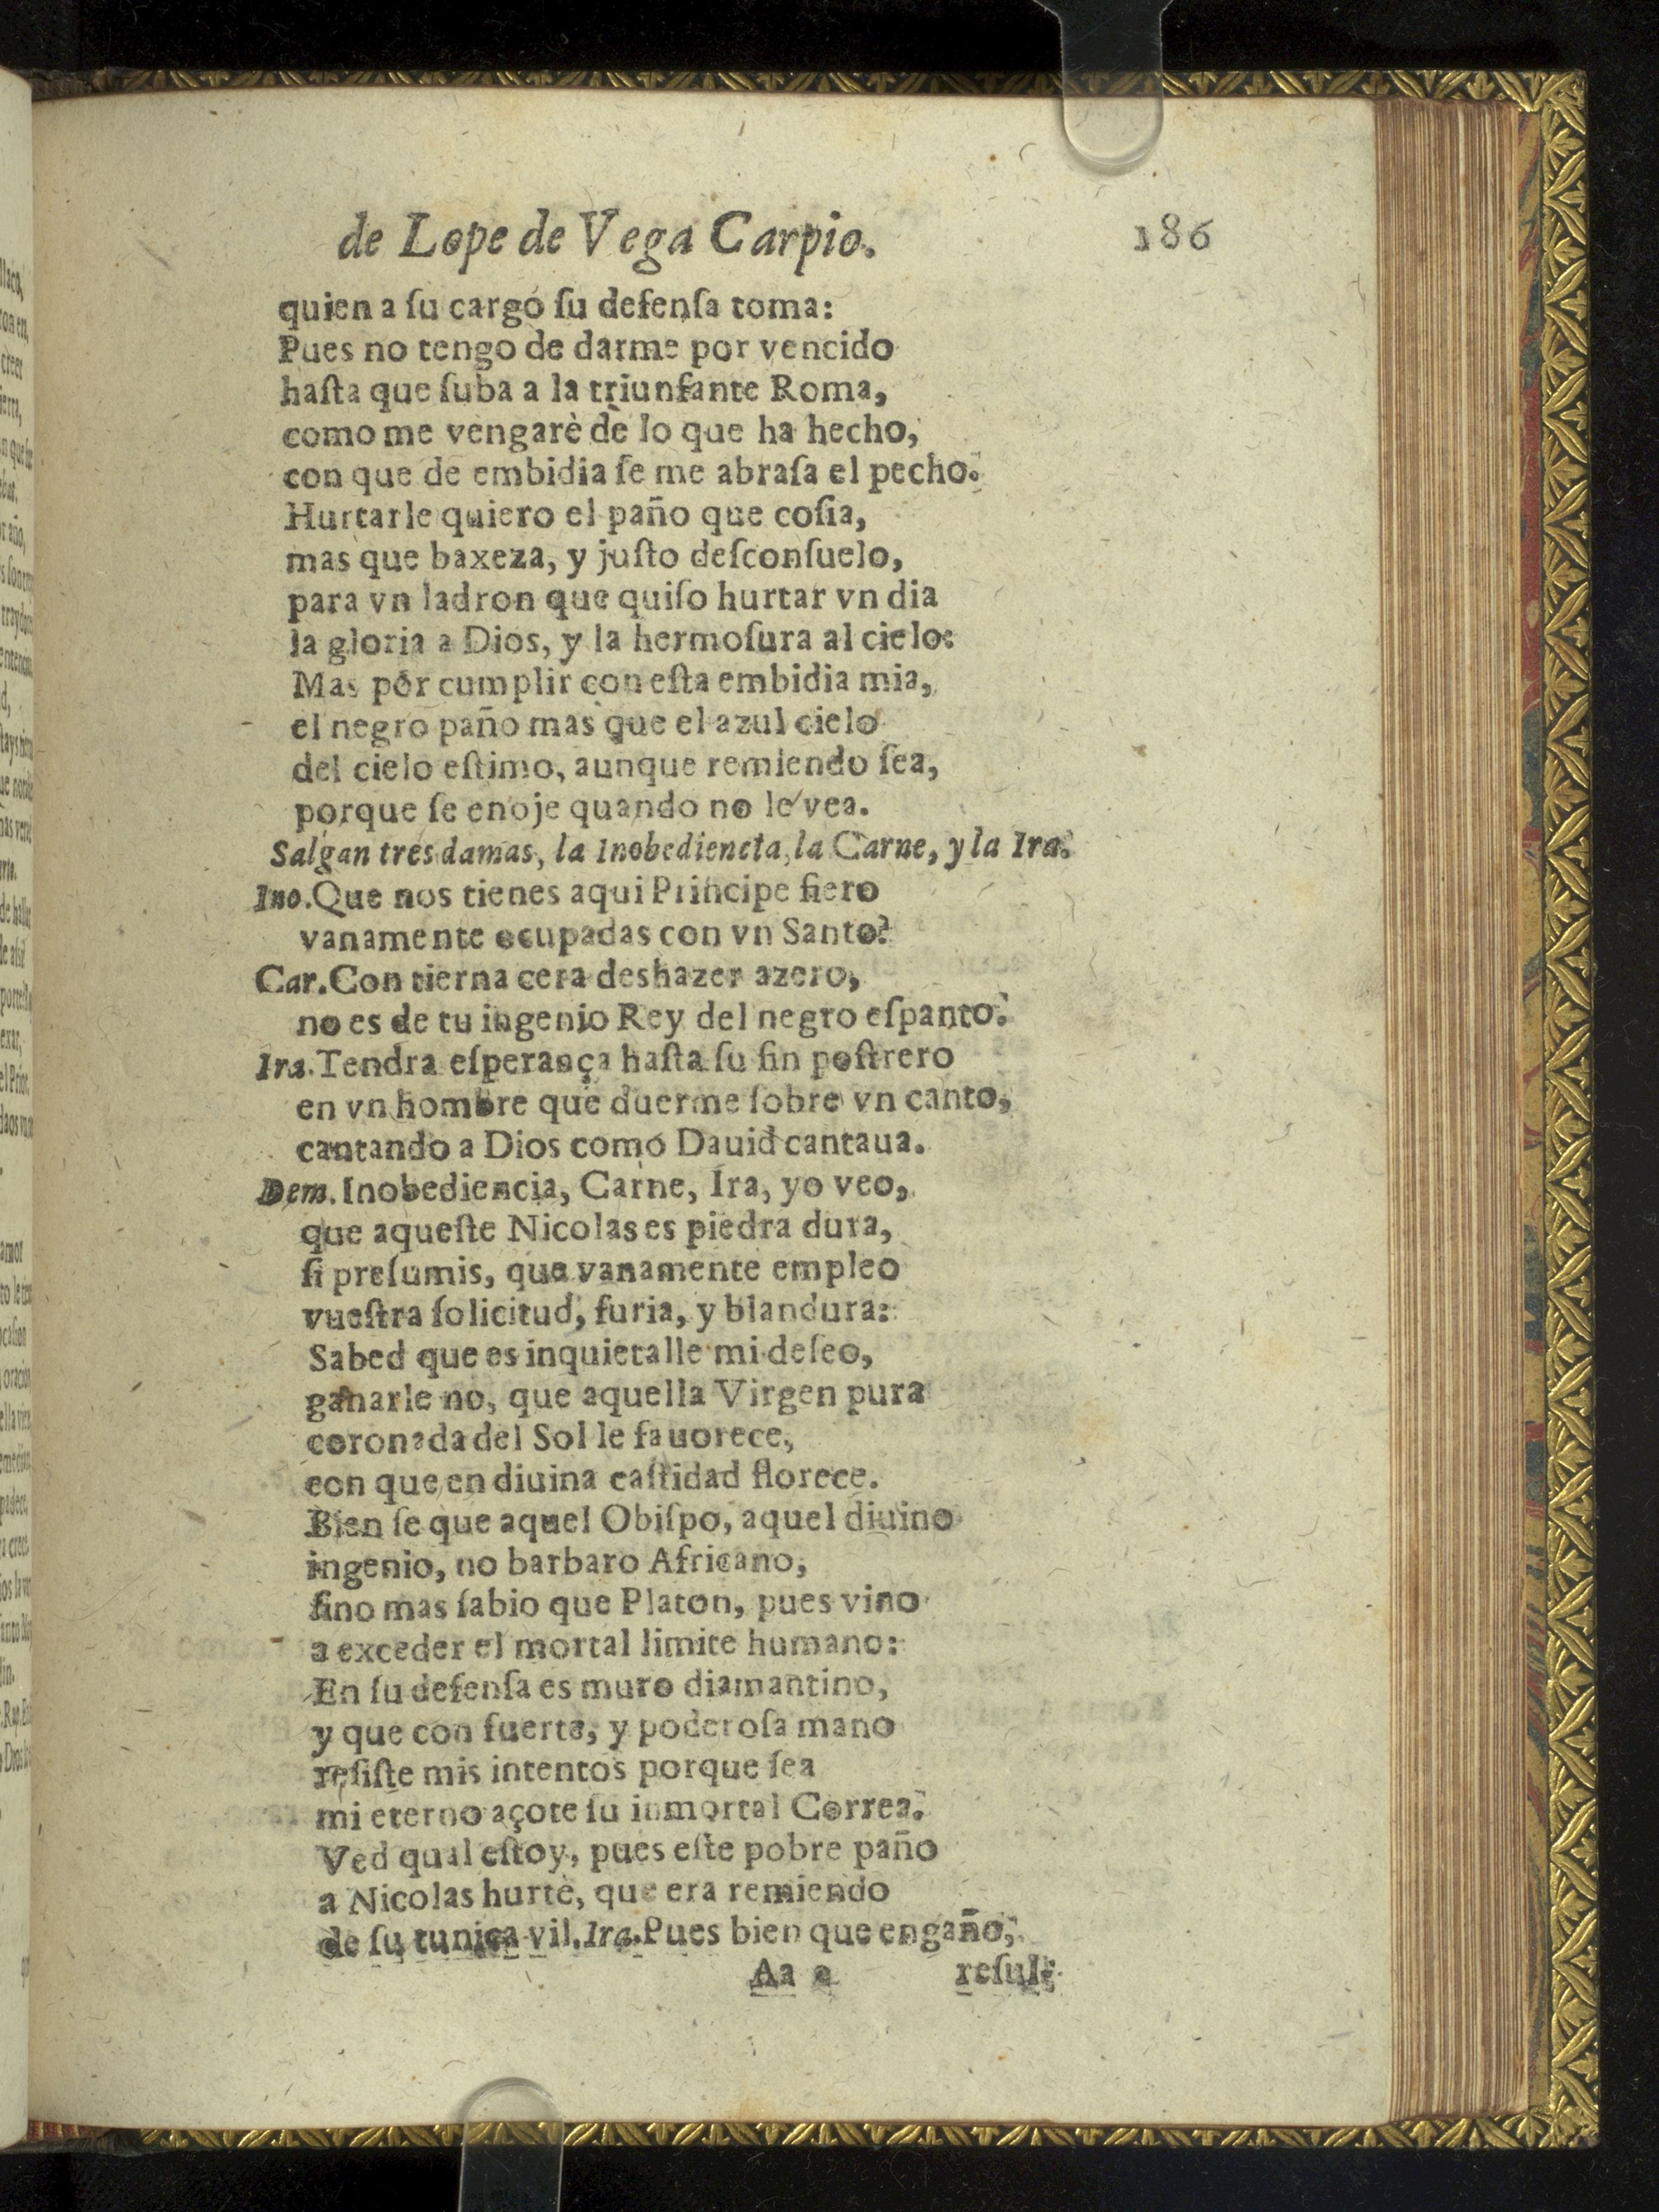 de Lope de Vega Carpio. 186
quien a ſu cargo ſu defenſa toma:
Pues no tengo de darme por vencido
haſta que ſuba a la triunfante Roma,
como me vengarè de lo que ha hecho,
con que de embidia ſe me abraſa el pecho.
Hurtarle quiero el paño que coſia,
mas que baxeza, y juſto deſconſuelo,
para vn ladron que quiſo hurtar vn dia
la gloria a Dios, y la hermoſura al cielo:
Mas por cumplir con eſta embidia mia,
el negro paño mas que el azul cielo
del cielo eſtimo, aunque remiendo ſea,
porque ſe enoje quando no le vea.
Salgan tres damas, la Inobediencia, la Carne, y la Ira.
Ino. Que nos tienes aqui Principe fiero
vanamente ocupadas con vn Santo?
Car. Con tierna cera deshazer azero,
no es de tu ingenio Rey del negro eſpanto.
Ira. Tendra eſperança haſta ſu fin poſtrero
en vn hombre que duerme ſobre vn canto,
cantando a Dios como Dauid cantaua.
Dem. Inobediencia, Carne, Ira, yo veo,
que aqueſte Nicolas es piedra dura,
ſi preſumis, que vanamente empleo
vueſtra ſolicitud, furia, y blandura:
Sabed que es inquietalle mi deſeo,
ganarle no, que aquella Virgen pura
coronada del Sol le fauorece,
con que en diuina caſtidad florece.
Bien ſe que aquel Obiſpo, aquel diuino
ingenio, no barbaro Africano,
ſino mas ſabio que Platon, pues vino
a exceder el mortal limite humano:
En ſu defenſa es muro diamantino,
y que con fuerte, y poderoſa mano
reſiſte mis intentos porque ſea
mi eterno açote ſu inmortal Correa.
Ved qual eſtoy, pues eſte pobre paño
a Nicolas hurtè, que era remiendo
de ſu tunica vil. Ira. Pues bien que engaño,
Aa 2 reſul-